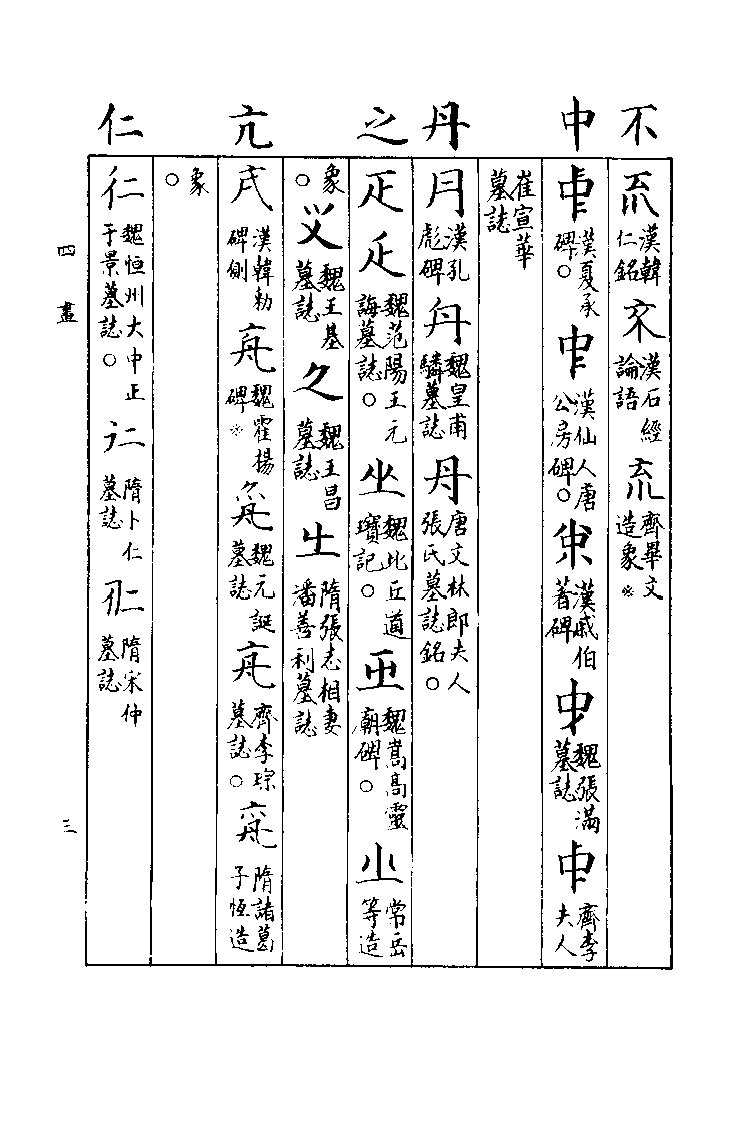 不 𠀚漢韓仁銘 𣎳漢石經論語 𠀚齊畢文造象※
中 漢夏承碑○ 漢仙人唐公房碑○ 漢戚伯著碑 魏張滿墓誌 齊李夫人
崔宣華墓誌
丹 漢孔彪碑 魏皇甫驎墓誌 唐文林郎夫人張氏墓誌銘○
之 魏范陽王元誨墓誌○ 魏比丘道寶記○ 魏嵩高靈廟碑○ 常岳等造
象○ 魏王基墓誌 魏王昌墓誌 隋張志相妻潘善利墓誌
亢 漢韓勑碑側 魏霍揚碑※ 魏元誕墓誌 齊李琮墓誌○ 隋諸葛子恆造
象○
仁 魏恒州大中正于景墓誌○ 隋卜仁墓誌 隋宋仲墓誌
四畫
三